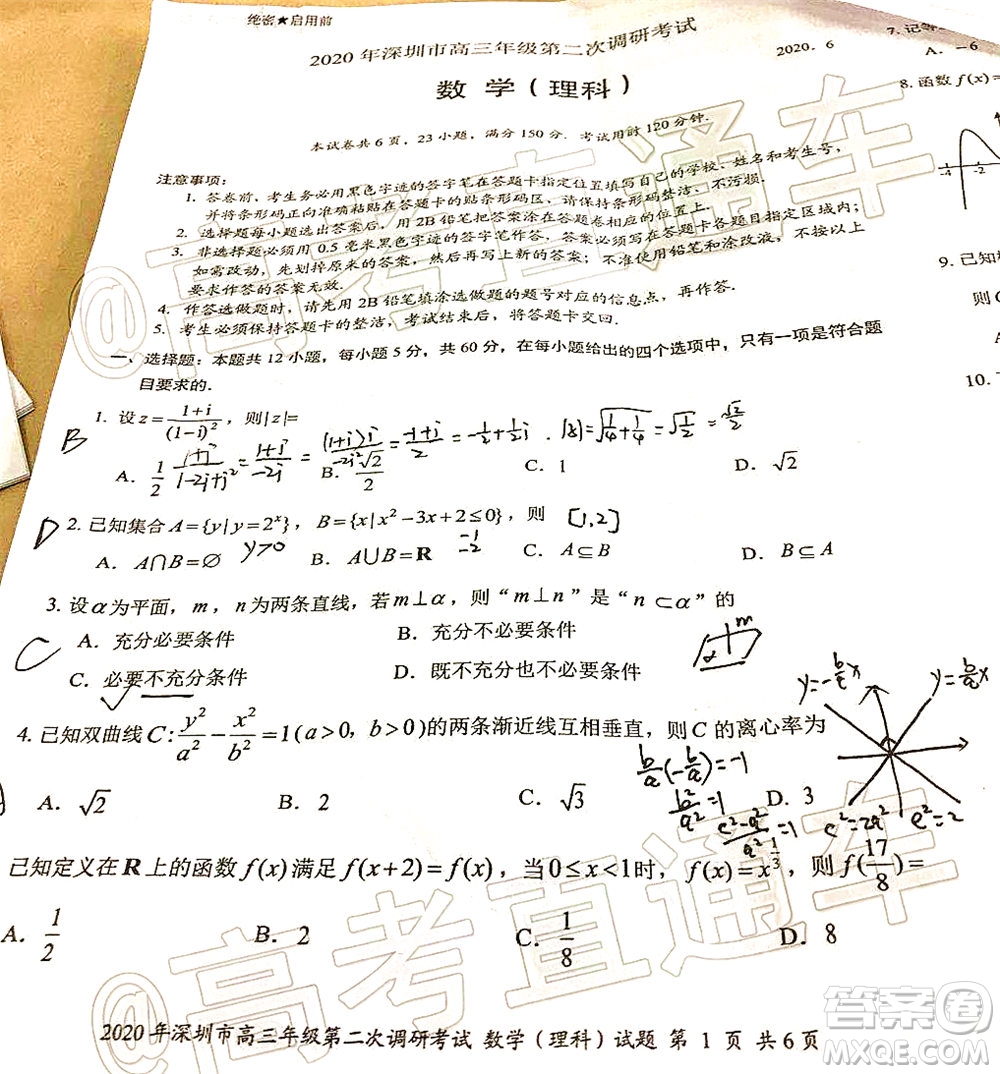 绝密★启用前
2020年深圳市高三年级第二次调研考试
数 学（理科）
2020．6
本试卷共6页，23小题，满分150分．考试用时120分钟．
注意事项：
1．答卷前，考生务必用黑色字迹的签字笔在答题卡指定位置填写自己的学校、姓名和考生号，
并将条形码正向准确粘贴在答题卡的贴条形码区，请保持条形码整洁、不污损．
2．选择题每小题选出答案后，用2B铅笔把答案涂在答题卷相应的位置上．
3．非选择题必须用0.5毫米黑色字迹的签字笔作答，答案必须写在答题卡各题目指定区域内；
如需改动，先划掉原来的答案，然后再写上新的答案；不准使用铅笔和涂改液，不按以上
要求作答的答案无效．
4．作答选做题时，请先用2B铅笔填涂选做题的题号对应的信息点，再作答．
5．考生必须保持答题卡的整洁，考试结束后，将答题卡交回．
一、选择题：本题共12小题，每小题5分，共60分，在每小题给出的四个选项中，只有一项是符合题
目要求的．
B
1．设z=(1+i)/(1-i)²，则|z|=
(1+i)/(1-2i+i²)=(1+i)/(-2i)=(1+i)i/(-2i²)=(-1+i)/2=-1/2+1/2i．|z|=√(1/4+1/4)=√(1/2)=√2/2
A．1/2 B．√2/2 C．1 D．√2
D
2．已知集合A={y|y=2ˣ}，B={x|x²-3x+2≤0}，则 [1,2]
y>0
-1
-2
A．A∩B=∅ B．A∪B=R C．A⊆B D．B⊆A
3．设α为平面，m，n为两条直线，若m⊥α，则“m⊥n”是“n⊂α”的
C
A．充分必要条件 B．充分不必要条件
C．必要不充分条件 D．既不充分也不必要条件
m
α
4．已知双曲线C:y²/a²-x²/b²=1(a>0，b>0)的两条渐近线互相垂直，则C的离心率为
A．√2 B．2 C．√3 D．3
y=-b/a x
y=b/a x
b/a(-b/a)=-1
b²/a²=1
(c²-a²)/a²=1
c²=2a² e²=2
已知定义在R上的函数f(x)满足f(x+2)=f(x)，当0≤x<1时，f(x)=x^(1/3)，则f(17/8)=
A．1/2 B．2 C．1/8 D．8
2020年深圳市高三年级第二次调研考试 数学（理科）试题 第 1 页 共6页
7．记等
A．-6
8．函数f(x)=
-4 -2
9．已知
则
A
10．
@高考直通车
@高考直通车
答案圈
MXQE.COM